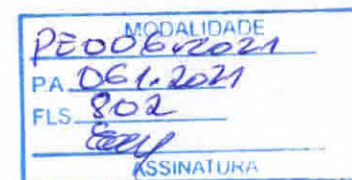 MODALIDADE
PE006.2021
P.A. 061.2021
FLS. 802
ASSINATURA